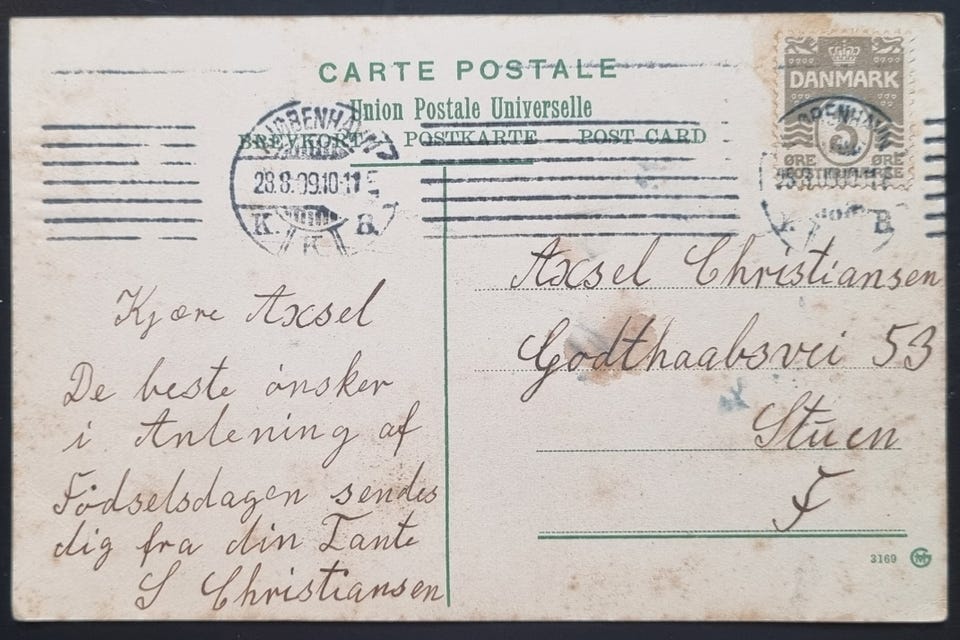 CARTE POSTALE
Union Postale Universelle
BREVKORT POSTKARTE POST CARD
DANMARK
3
ØRE ØRE
KJØBENHAVN
28.8.09.10-11
K. B.
K
Kjære Axsel
De beste ønsker
i Anlening af
Födselsdagen sendes
dig fra din Tante
S Christiansen
Axsel Christiansen
Godthaabsvei 53
Stuen
F
3169